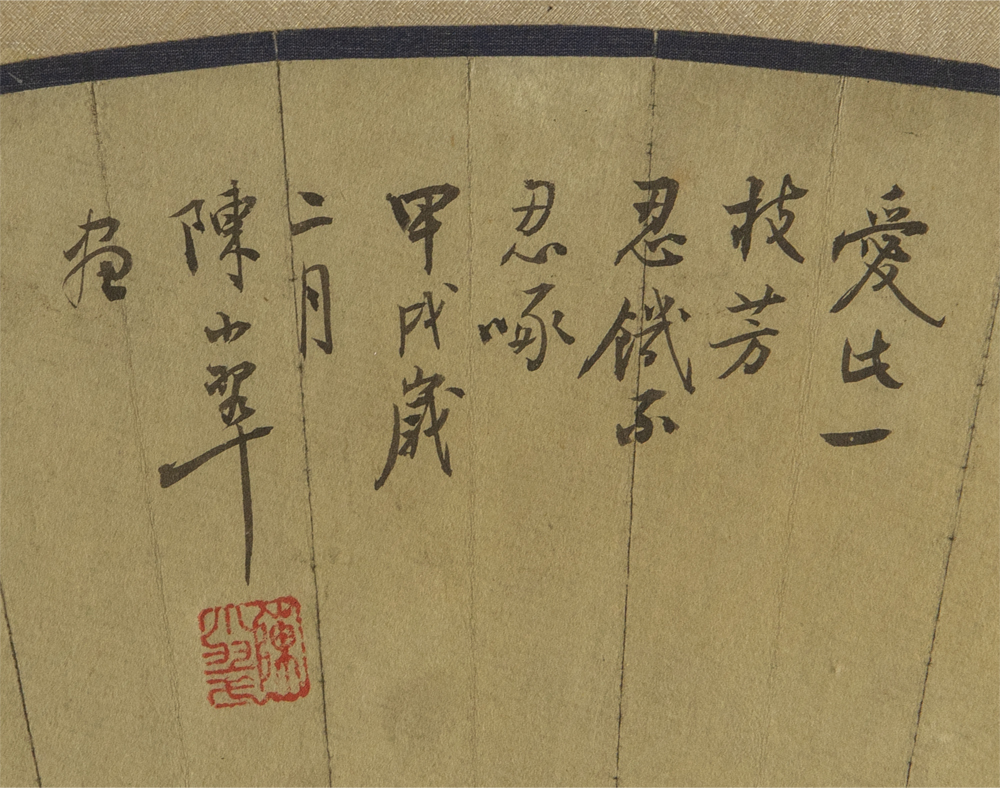 愛此一
枝芳
忍饑不
忍啄
甲戌歲
二月
陳小翠
画
陳小翠